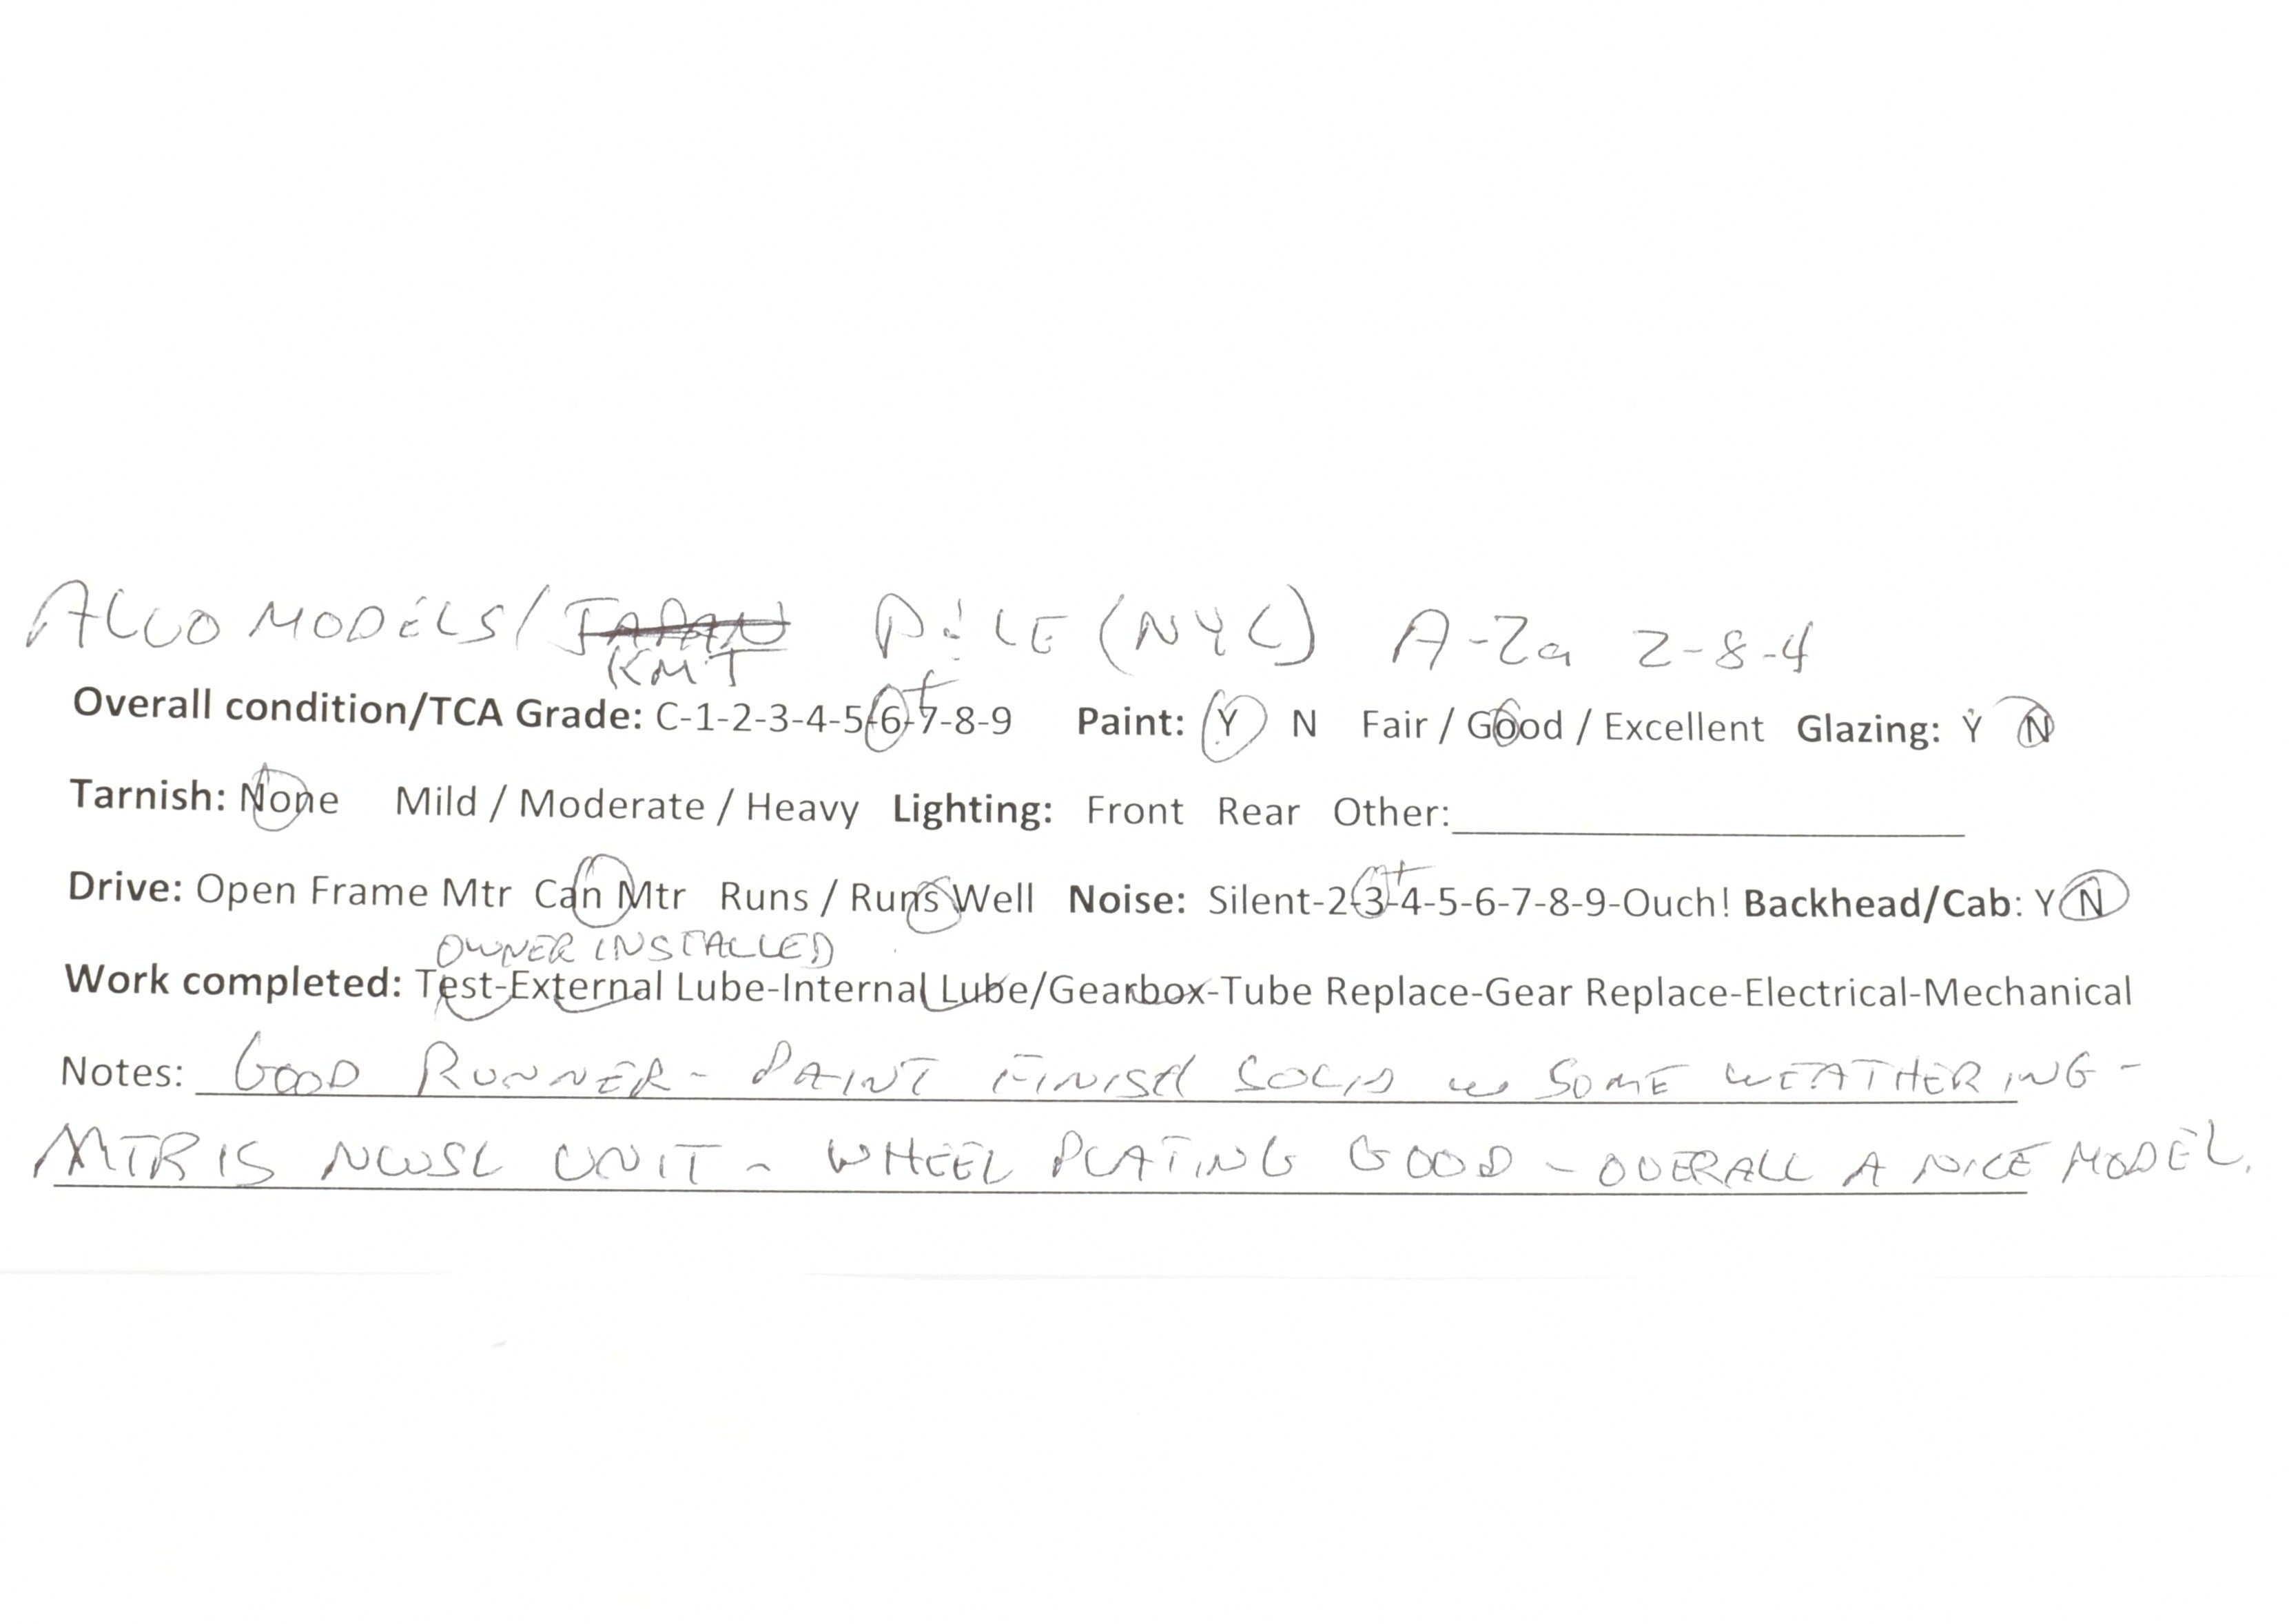 ALCO MODELS/ JAPAN P&LE (NYC) A-2a 2-8-4
KMT
Overall condition/TCA Grade: C-1-2-3-4-5-6-7-8-9 Paint: Y N Fair / Good / Excellent Glazing: Y N
Tarnish: None Mild / Moderate / Heavy Lighting: Front Rear Other:
Drive: Open Frame Mtr Can Mtr Runs / Runs Well Noise: Silent-2-3-4-5-6-7-8-9-Ouch! Backhead/Cab: Y N
OWNER INSTALLED
Work completed: Test-External Lube-Internal Lube/Gearbox-Tube Replace-Gear Replace-Electrical-Mechanical
Notes: GOOD RUNNER - PAINT FINISH SOLID w SOME WEATHERING -
MTR IS NWSL UNIT - WHEEL PLATING GOOD - OVERALL A NICE MODEL.